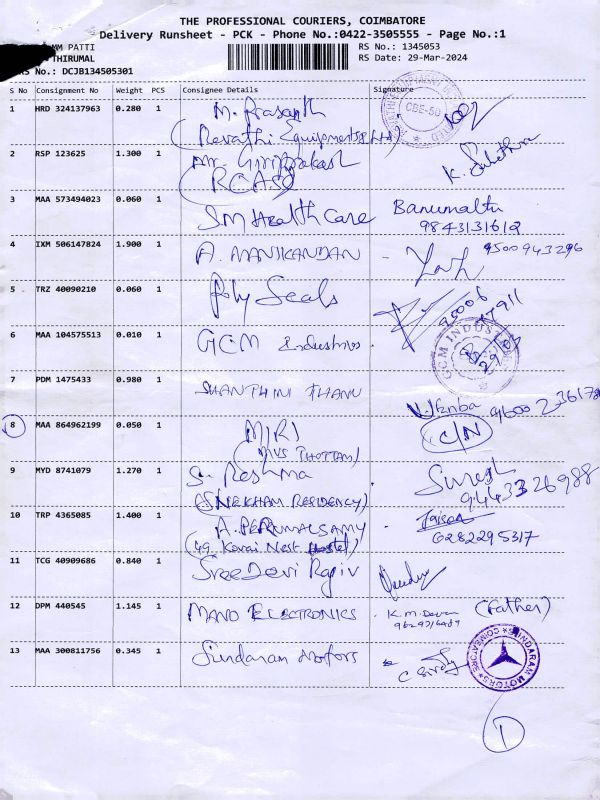 THE PROFESSIONAL COURIERS, COIMBATORE
Delivery Runsheet - PCK - Phone No.:0422-3505555 - Page No.:1
MM PATTI
THIRUMAL
RS No.: DCJB134505301
RS No.: 1345053
RS Date: 29-Mar-2024
S No Consignment No Weight PCS Consignee Details Signature
1 HRD 324137963 0.280 1 M. Prasanth
(Revathi Equipments Ltd) CBE-50
2 RSP 123625 1.300 1 Mr. Giriprakash
(RCASC
3 MAA 573494023 0.060 1 SM Health Care Banumathi
9843131612
4 IXM 506147824 1.900 1 A. MANIKANDAN - 9500943296
5 TRZ 40090210 0.060 1 Poly Seals 95006
17911
6 MAA 104575513 0.010 1 GCM Industries GCM INDUST
7 PDM 1475433 0.980 1 SHANTHINI THANU
8 MAA 864962199 0.050 1 MIRI V. Venba
(MVS THOTTAM) C/N
9 MYD 8741079 1.270 1 S. Reshma Suresh
(SNEKHAM RESIDENCY) 9443326988
10 TRP 4365085 1.400 1 A. PERUMALSAMY - Jaison
(49 Kovai Nest Hostel) 6282295317
11 TCG 40909686 0.840 1 Sree Devi Rajiv
12 DPM 440545 1.145 1 MANO ELECTRONICS - K.M. Devan (Father)
13 MAA 300811756 0.345 1 Sundaram Motors SUNDARAM MOTORS * COIMBATORE *
1